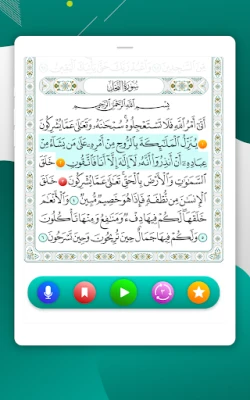 سُورَةُ النَّحْلِ
بِسْمِ ٱللَّهِ ٱلرَّحْمَٰنِ ٱلرَّحِيمِ
أَتَىٰٓ أَمْرُ ٱللَّهِ فَلَا تَسْتَعْجِلُوهُ سُبْحَٰنَهُۥ وَتَعَٰلَىٰ عَمَّا يُشْرِكُونَ
١ يُنَزِّلُ ٱلْمَلَٰٓئِكَةَ بِٱلرُّوحِ مِنْ أَمْرِهِۦ عَلَىٰ مَن يَشَآءُ مِنْ
عِبَادِهِۦٓ أَنْ أَنذِرُوٓا۟ أَنَّهُۥ لَآ إِلَٰهَ إِلَّآ أَنَا۠ فَٱتَّقُونِ ٢ خَلَقَ
ٱلسَّمَٰوَٰتِ وَٱلْأَرْضَ بِٱلْحَقِّ تَعَٰلَىٰ عَمَّا يُشْرِكُونَ ٣ خَلَقَ
ٱلْإِنسَٰنَ مِن نُّطْفَةٍ فَإِذَا هُوَ خَصِيمٌ مُّبِينٌ ٤ وَٱلْأَنْعَٰمَ
خَلَقَهَا لَكُمْ فِيهَا دِفْءٌ وَمَنَٰفِعُ وَمِنْهَا تَأْكُلُونَ
٥ وَلَكُمْ فِيهَا جَمَالٌ حِينَ تُرِيحُونَ وَحِينَ تَسْرَحُونَ ٦